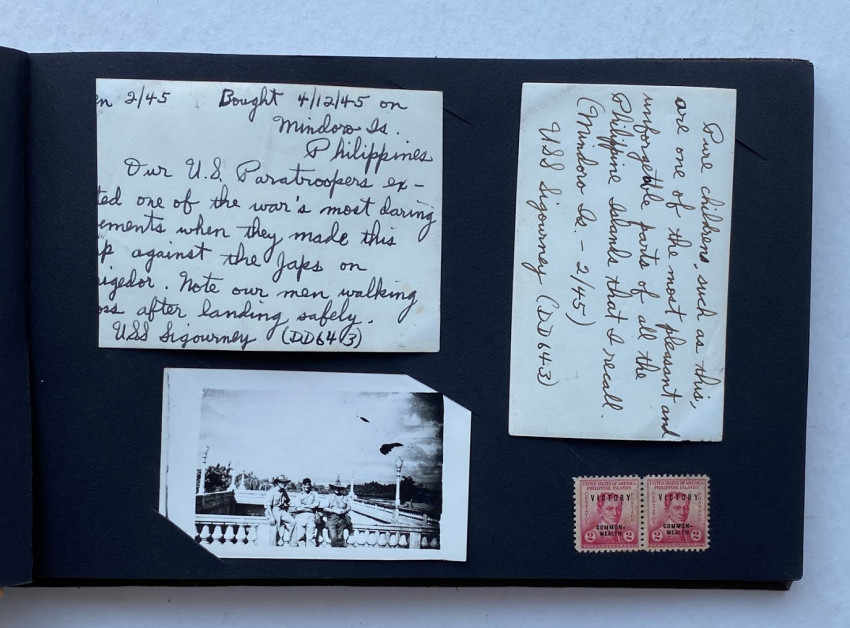 n 2/45 Bought 4/12/45 on
Mindoro Is.
Philippines
Our U.S. Paratroopers ex-
ted one of the war's most daring
ements when they made this
p against the Japs on
igedor. Note our men walking
oss after landing safely.
USS Sigourney (DD643)
Pure children, such as this,
are one of the most pleasant and
unforgetable parts of all the
Philippine Islands that I recall.
(Mindoro Is. - 2/45)
USS Sigourney (DD643)
UNITED STATES OF AMERICA
PHILIPPINE ISLANDS
VICTORY
COMMON-
WEALTH
2 2
UNITED STATES OF AMERICA
PHILIPPINE ISLANDS
VICTORY
COMMON-
WEALTH
2 2